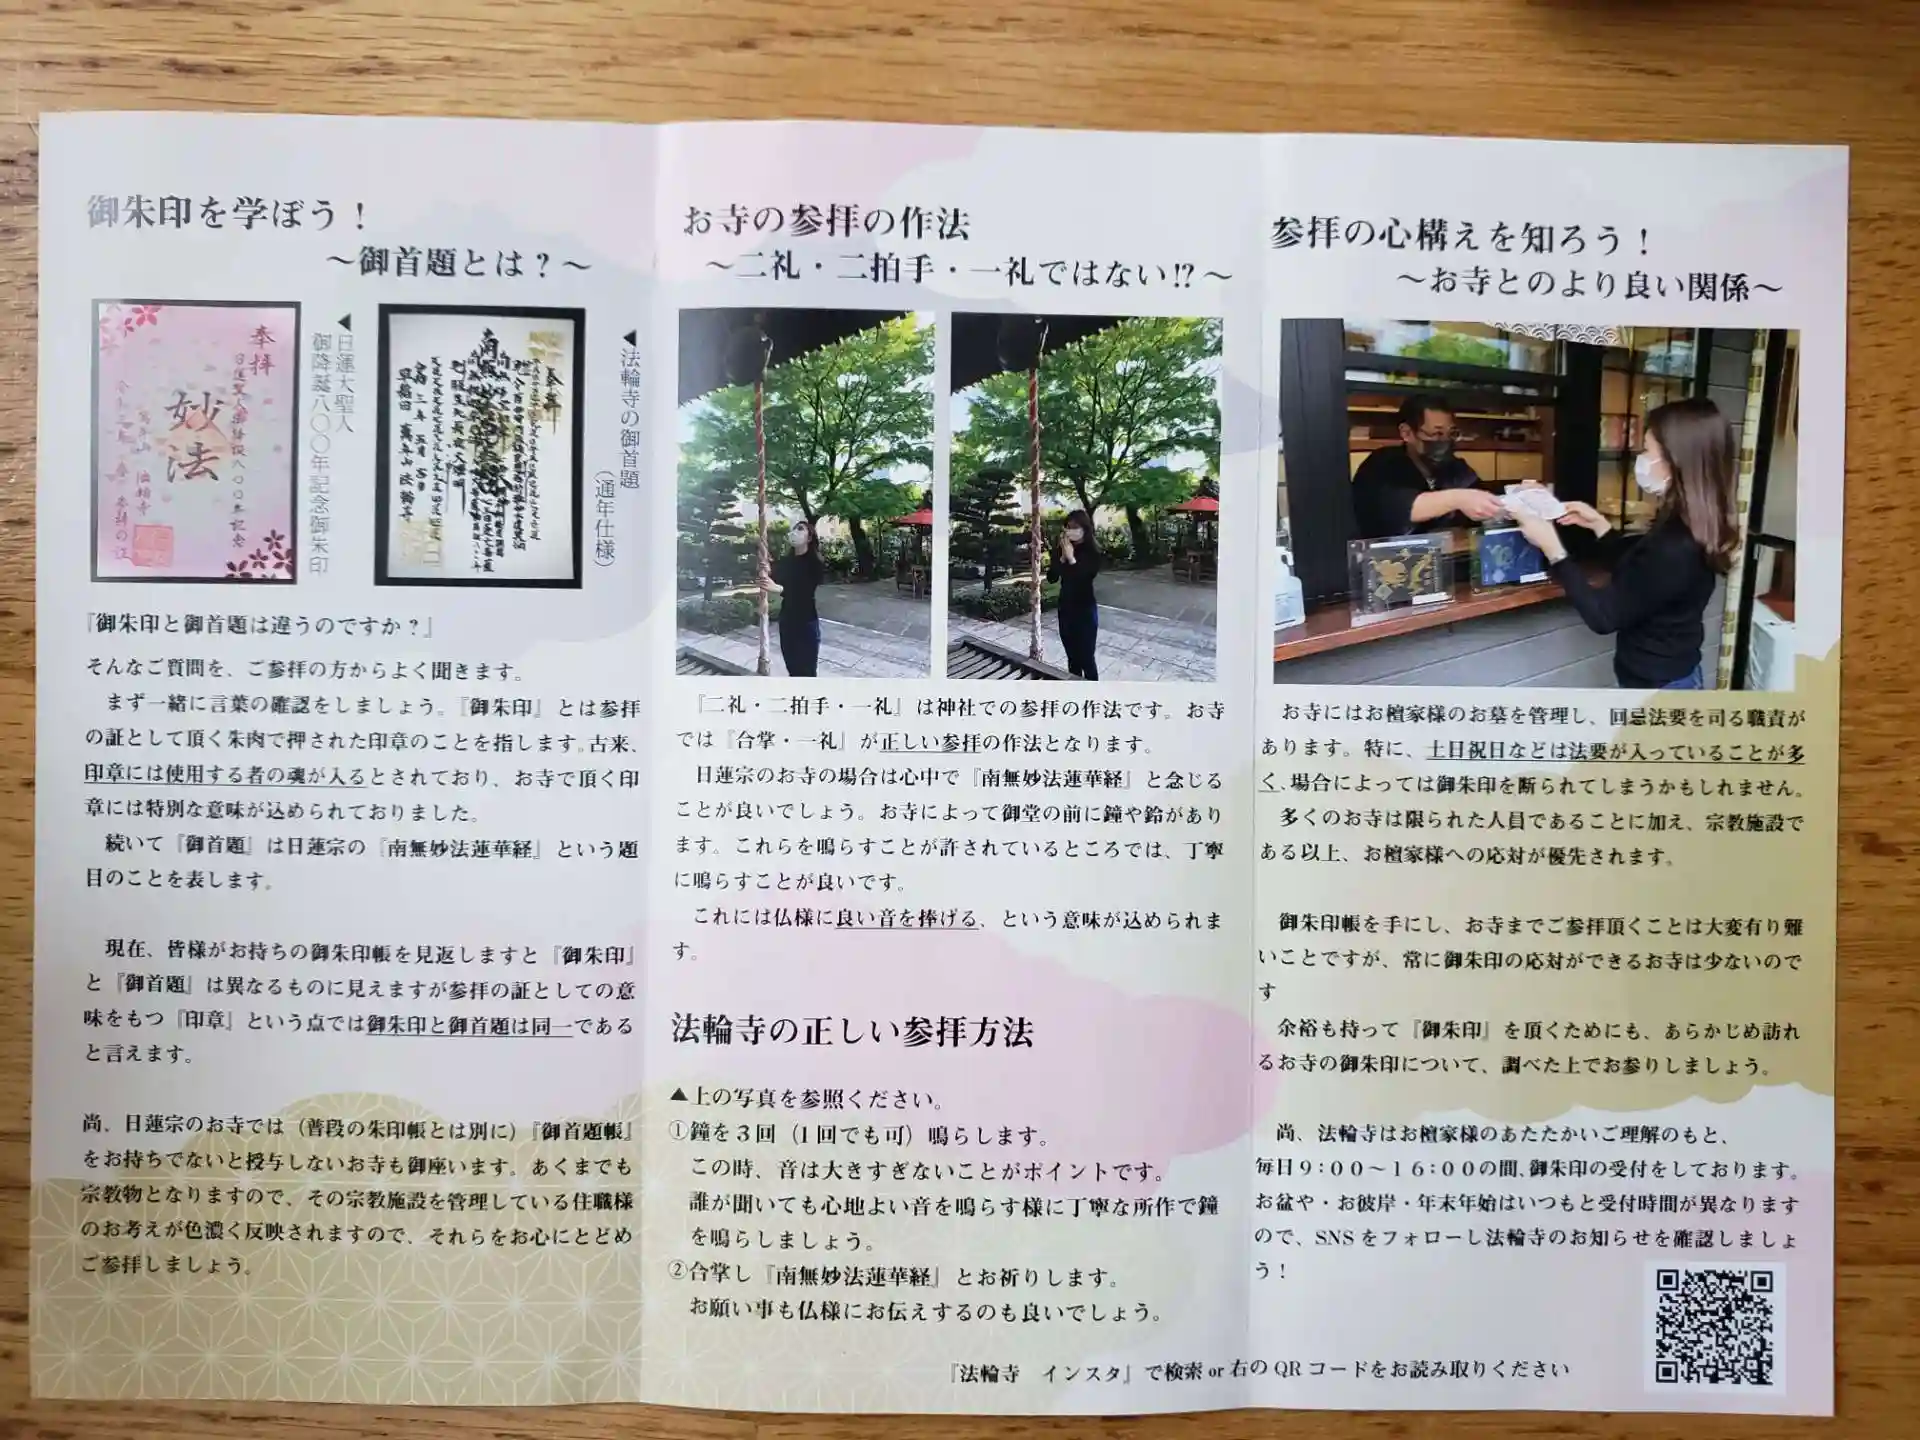 御朱印を学ぼう！
～御首題とは？～
奉拝
妙法
法輪寺
◀日蓮大聖人
御降誕八〇〇年記念御朱印
◀法輪寺の御首題
（通年仕様）
『御朱印と御首題は違うのですか？』
そんなご質問を、ご参拝の方からよく聞きます。
まず一緒に言葉の確認をしましょう。『御朱印』とは参拝
の証として頂く朱肉で押された印章のことを指します。古来、
印章には使用する者の魂が入るとされており、お寺で頂く印
章には特別な意味が込められておりました。
続いて『御首題』は日蓮宗の『南無妙法蓮華経』という題
目のことを表します。
現在、皆様がお持ちの御朱印帳を見返しますと『御朱印』
と『御首題』は異なるものに見えますが参拝の証としての意
味をもつ『印章』という点では御朱印と御首題は同一である
と言えます。
尚、日蓮宗のお寺では（普段の朱印帳とは別に）『御首題帳』
をお持ちでないと授与しないお寺も御座います。あくまでも
宗教物となりますので、その宗教施設を管理している住職様
のお考えが色濃く反映されますので、それらをお心にとどめ
ご参拝しましょう。
お寺の参拝の作法
～二礼・二拍手・一礼ではない!?～
『二礼・二拍手・一礼』は神社での参拝の作法です。お寺
では『合掌・一礼』が正しい参拝の作法となります。
日蓮宗のお寺の場合は心中で『南無妙法蓮華経』と念じる
ことが良いでしょう。お寺によって御堂の前に鐘や鈴があり
ます。これらを鳴らすことが許されているところでは、丁寧
に鳴らすことが良いです。
これには仏様に良い音を捧げる、という意味が込められま
す。
法輪寺の正しい参拝方法
▲上の写真を参照ください。
①鐘を３回（1回でも可）鳴らします。
この時、音は大きすぎないことがポイントです。
誰が聞いても心地よい音を鳴らす様に丁寧な所作で鐘
を鳴らしましょう。
②合掌し『南無妙法蓮華経』とお祈りします。
お願い事も仏様にお伝えするのも良いでしょう。
参拝の心構えを知ろう！
～お寺とのより良い関係～
お寺にはお檀家様のお墓を管理し、回忌法要を司る職責が
あります。特に、土日祝日などは法要が入っていることが多
く、場合によっては御朱印を断られてしまうかもしれません。
多くのお寺は限られた人員であることに加え、宗教施設で
ある以上、お檀家様への応対が優先されます。
御朱印帳を手にし、お寺までご参拝頂くことは大変有り難
いことですが、常に御朱印の応対ができるお寺は少ないので
す
余裕も持って『御朱印』を頂くためにも、あらかじめ訪れ
るお寺の御朱印について、調べた上でお参りしましょう。
尚、法輪寺はお檀家様のあたたかいご理解のもと、
毎日９：００～１６：００の間、御朱印の受付をしております。
お盆や・お彼岸・年末年始はいつもと受付時間が異なります
ので、SNSをフォローし法輪寺のお知らせを確認しましょ
う！
『法輪寺　インスタ』で検索 or 右の QR コードをお読み取りください